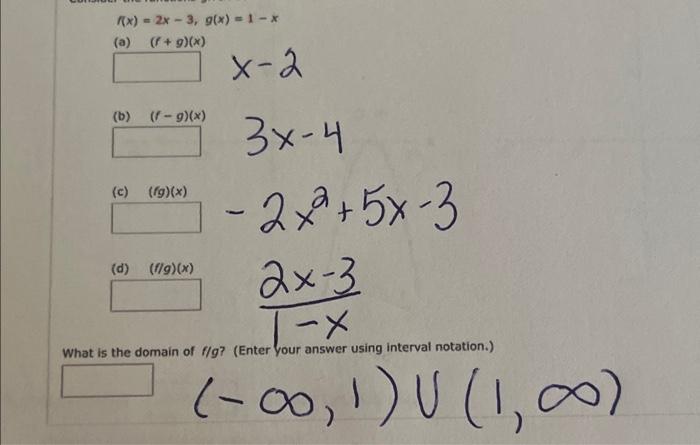 f(x) = 2x − 3, g(x) = 1 − x
(a) (f + g)(x)
x-2
(b) (f − g)(x)
3x-4
(c) (fg)(x)
-2x²+5x-3
(d) (f/g)(x)
2x-3
1-x
What is the domain of f/g? (Enter your answer using interval notation.)
(-∞,1)∪(1,∞)